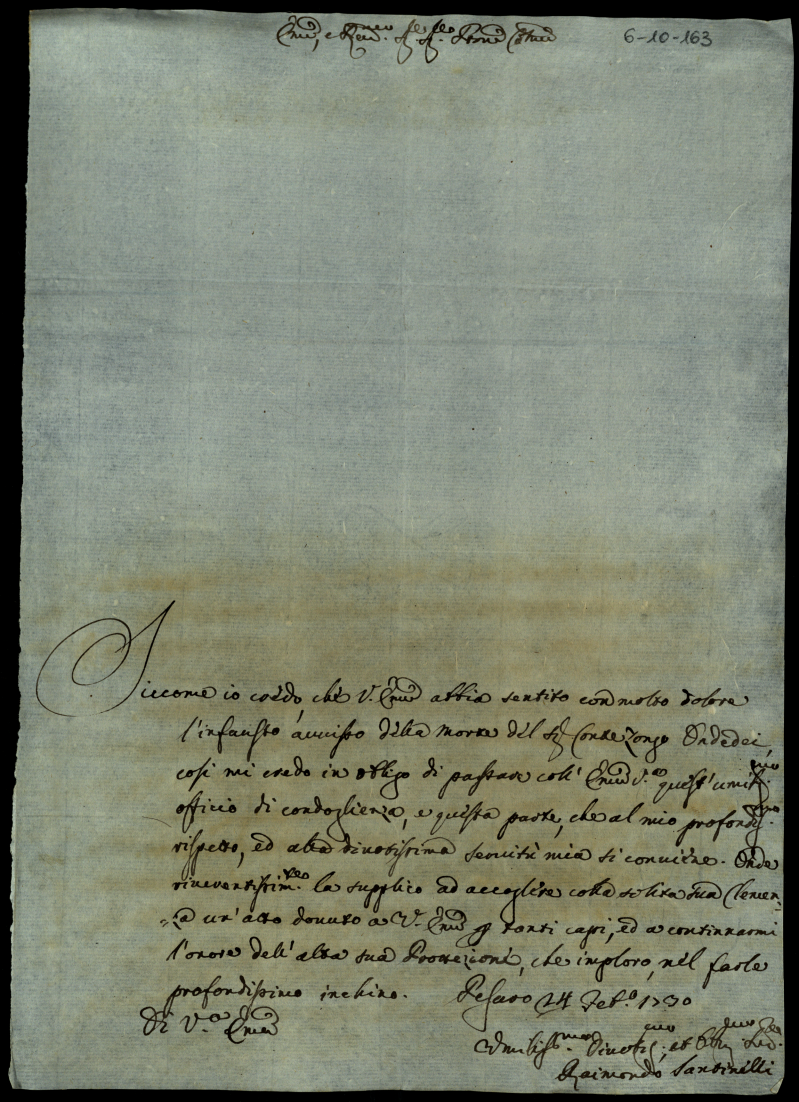 Em̃o, e Rev.mo Sig.r Sig.r Prõne Col.mo
6-10-163
Siccome io credo, che V. Em̃a abbia sentito con molto dolore
l'infausto avviso della morte del Sig.r Conte Zongo Ondedei,
così mi credo in obligo di passare coll' Em̃a V.a quest' umil.mo
officio di condoglienza, e questa parte, che al mio profondis.mo
rispetto, ed alla divotissima servitù mia si conviene. Onde
riverentissim.te la supplico ad accogliere colla solita sua Clemen-
=za un' atto dovuto a V. Em̃a per tanti capi, ed a continuarmi
l'onore dell' alta sua Protezzione, che imploro, nel farle
profondissimo inchino. Pesaro 24 Feb.o 1730
Di V.a Em̃a
Umiliss.mo Divotis.mo, et Obl.mo Ser.
Raimondo Santinelli